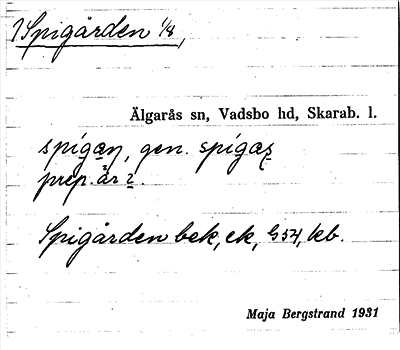 1 Spigården 1/8,
Älgarås sn, Vadsbo hd, Skarab. l.
spígan, gen. spígas
prep. år 2.
Spigården bek, ek, G54, kb.
Maja Bergstrand 1931